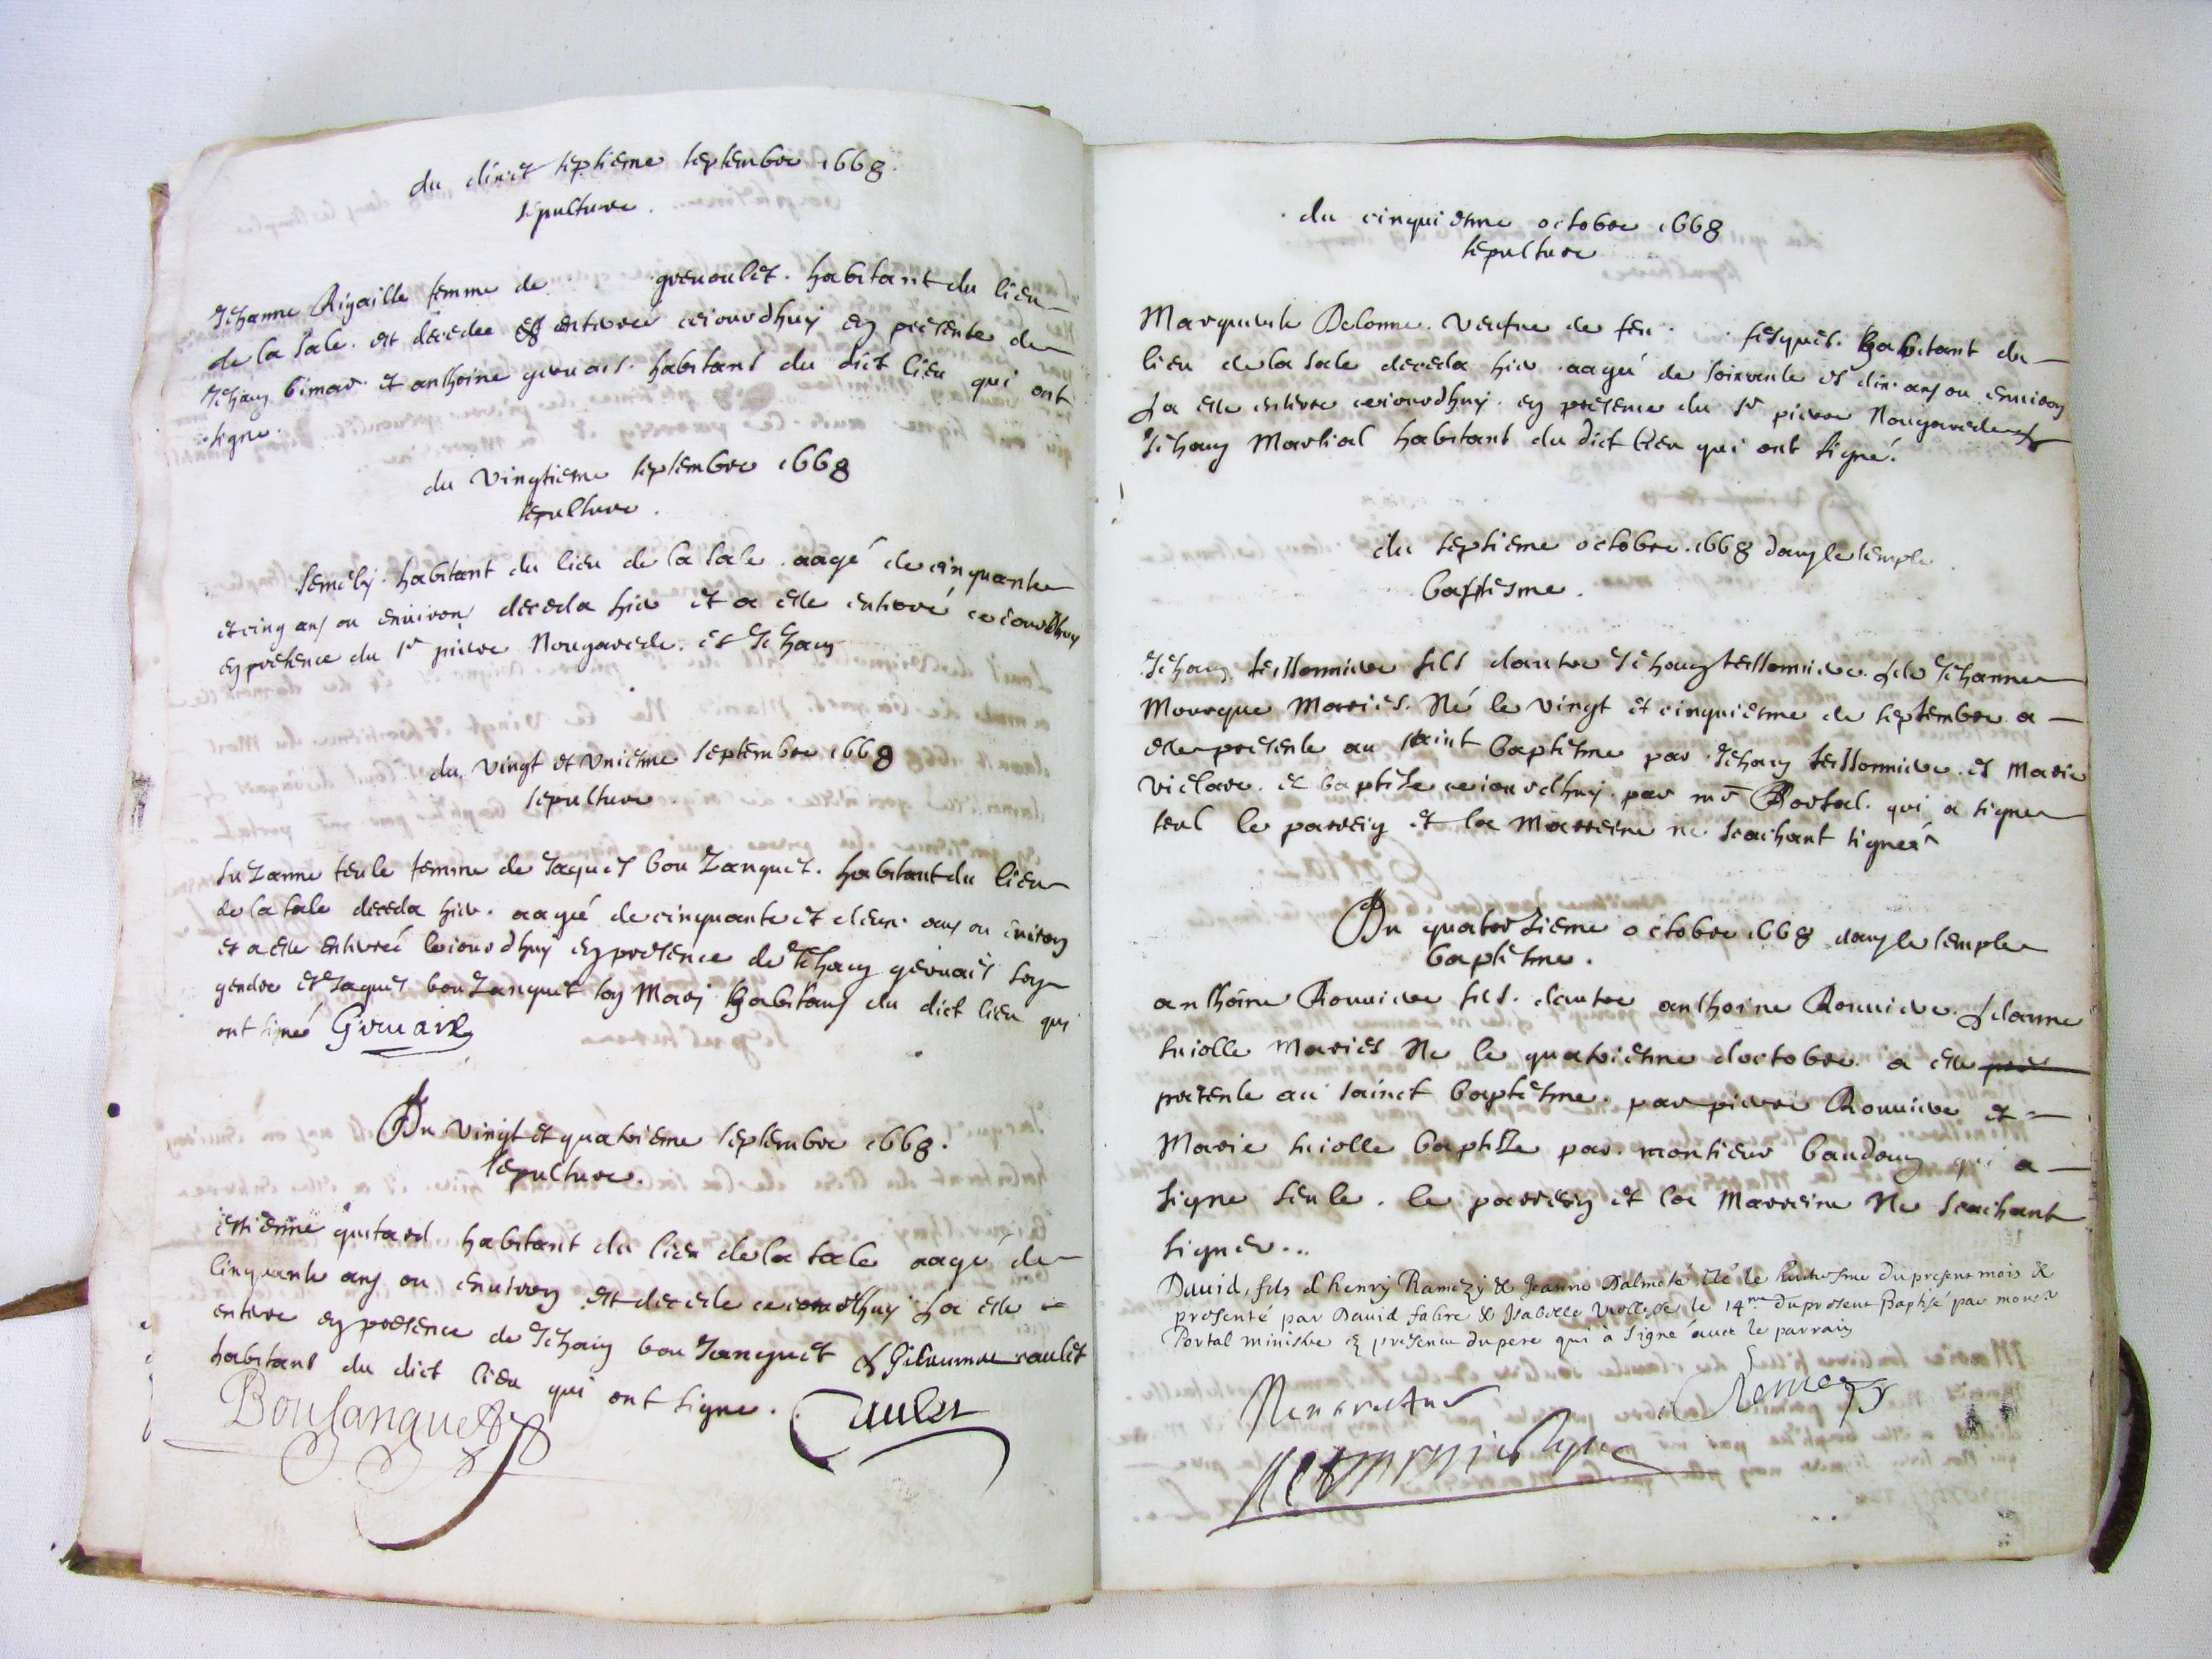 du dixet septieme septembre 1668.
sepulture.
Jehanne Rigaille femme de grenoulet. habitant du lieu
de la sale. est decedee et enterree ceiourdhuy en presente de
Jehan bimar et anthoine geruais. habitans du dict lieu qui ont
signe.
du vingtieme septembre 1668
sepulture.
habitant du lieu de la sale. aagé de cinquante
et cinq ans ou enuiron deceda hier et a este enterré ceiourdhuy
en presence du sr pierre Nougarede. et Jehan
du vingt et vniesme septembre 1668
sepulture
suzanne teule femme de Jaques bouzanquet. habitant du lieu
de la sale deceda hier. aagee de cinquante et deux ans ou enuiron
et a este enterreé ceiourdhuy en presence de Jehan geruais son
gendre et Jaques bouzanquet son Mary habitans du dict lieu qui
ont signé Geruais
Du vingt et quatrieme septembre 1668.
sepulture.
estienne quitard habitant du lieu de la sale aagé de
cinquante ans ou enuiron est decede ceiourdhuy & a este
enterre en presence de Jehan bouzanquet & Gilaume caulet
habitans du dict lieu qui ont signe.
Bousanquet Caulet
du cinquiesme octobre 1668
sepulture
Marguerite Delonne. veufue de feu fesques. habitant du
lieu de la sale deceda hier aagé de soixante et dix ans ou enuiron
& a este enterre ceiourdhuy. en presence du sr pierre Nougarede &
Jehan Martial habitans du dict lieu qui ont signé.
du septieme octobre. 1668 dans le temple
baptesme.
Jehan teissonniere fils dautre Jehan teissonniere. & de Jehanne
Mourgue Mariés. Né le vingt et cinquiesme de septembre a
este presente au saint baptesme par Jehan teissonniere. et Marie
viclare. et baptize ceiourdhuy. par mr Portal. qui a signe
seul le parrein et la Marreine ne scachant signer
Du quatorzieme octobre 1668 dans le temple
baptesme.
anthoine Rouuiere fils. dautre anthoine Rouuiere. & danne
suiolle Mariés Ne le quatriesme doctobre. a este pre
presente au sainct baptesme. par pierre Rouuiere et
Marie suiolle baptize par. monsieur baudouin qui a
signe seule. le parrein et la Marreine Ne scachant
signer...
Dauid, fils d'henry Ramezy & Jeanne Dalmeté, né le huitiesme du present mois &
presenté par Dauid fabre & Isabelle le 14me du present Baptisé par monsr
Portal ministre en presence du pere qui a signé auec le parrain